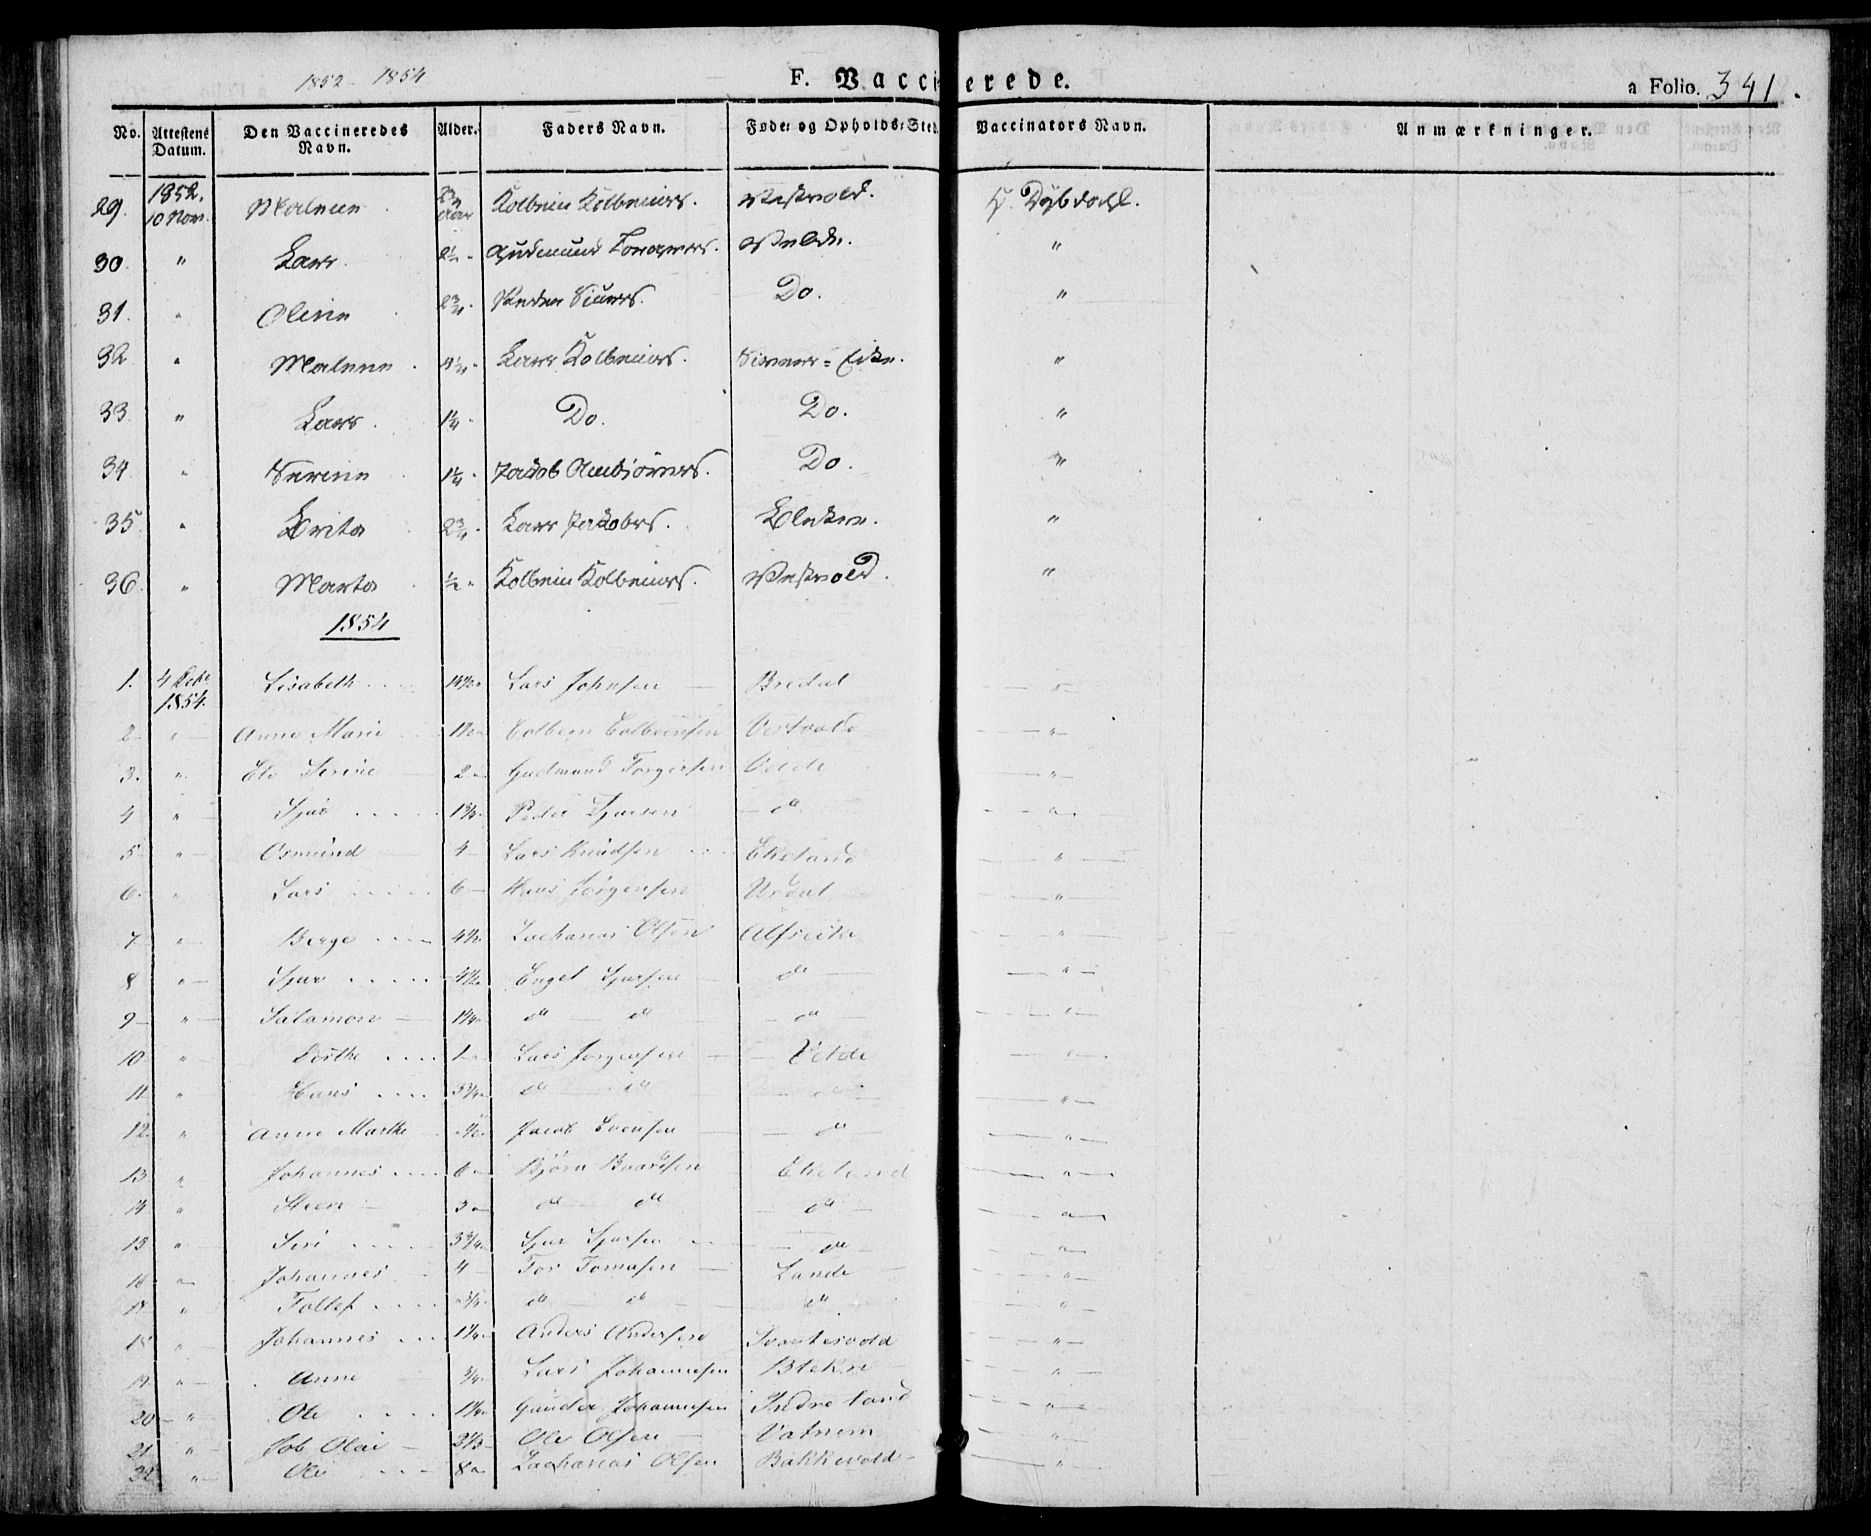 1852 - 1854
F. Vaccinerede.
a Folio. 341.
No. Attestens Datum. Den Vaccineredes Navn. Alder. Faders Navn. Føde- og Opholds-Sted Vaccinators Navn. Anmærkninger.
29. 1852. 10 Nov. Malene 2 3/4 Aar Kolbein Kolbeiners. Vestvold. Dybdahl.
30. " Lars 2 1/2 " Gudmund Torgiers. Velde. "
31. " Oline 2 3/4 " Peder Siurs. Do. "
32 " Malene 4 1/4 " Lars Kolbeiners. Eike. "
33 " Lars 1 1/4 " Do. Do. "
34 " Serine 1 1/4 " Jakob Do. "
35. " Brita 2 3/4 " Lars Jakobs. Blekne. "
36. " Marta 1/2 " Kolbein Kolbeiners. Vestvold. "
1854
1. 4 Octr 1854. Lisabeth 14 1/2 " Lars Johnsen Bredal "
2 " Anne Marie Colbeen Colbeensen Vestvold "
3. " Serine 2 " Gudmund Torgersen Velde "
4 " Sjur 1 3/4 " Peder Sjursen do "
5 " Osmund 4 Lars Knudsen Ekeland "
6. " Lars 6 Hans Jörgensen Urdal "
7 " Berge 4 1/2 Zacharias Olsen Alfseike "
8 " Sjur 4 1/2 Engel Sjursen do "
9 " Salamon 1 1/4 " do do do "
10 " Dorthe 1 " Lars Jørgensen Velde "
11 " Hans 3 3/4 " do do do "
12. " Anne Marthe 1/2 " Jacob Evensen do "
13 " Johannes 6 " Bjørn Baardsen Ekeland "
14 " Steen 3 " do do do "
15 " Siri 3 3/4 " Sjur Sjursen do "
16 " Johannes 4 Tor Tomasen Lande "
17 " Tollef 3/4 " do do do "
18 " Johannes 1 1/4 " Anders Andersen Svartesvold "
19 " Anne 3/4 " Lars Johannesen Blekne "
20 " Ole 1 1/4 " Gunder Johannesen Indre land "
21 " Job Olai 2 1/2 Ole Olsen Vatnem "
22 " Ole 8 " Zacharias Olsen Bakkevold "